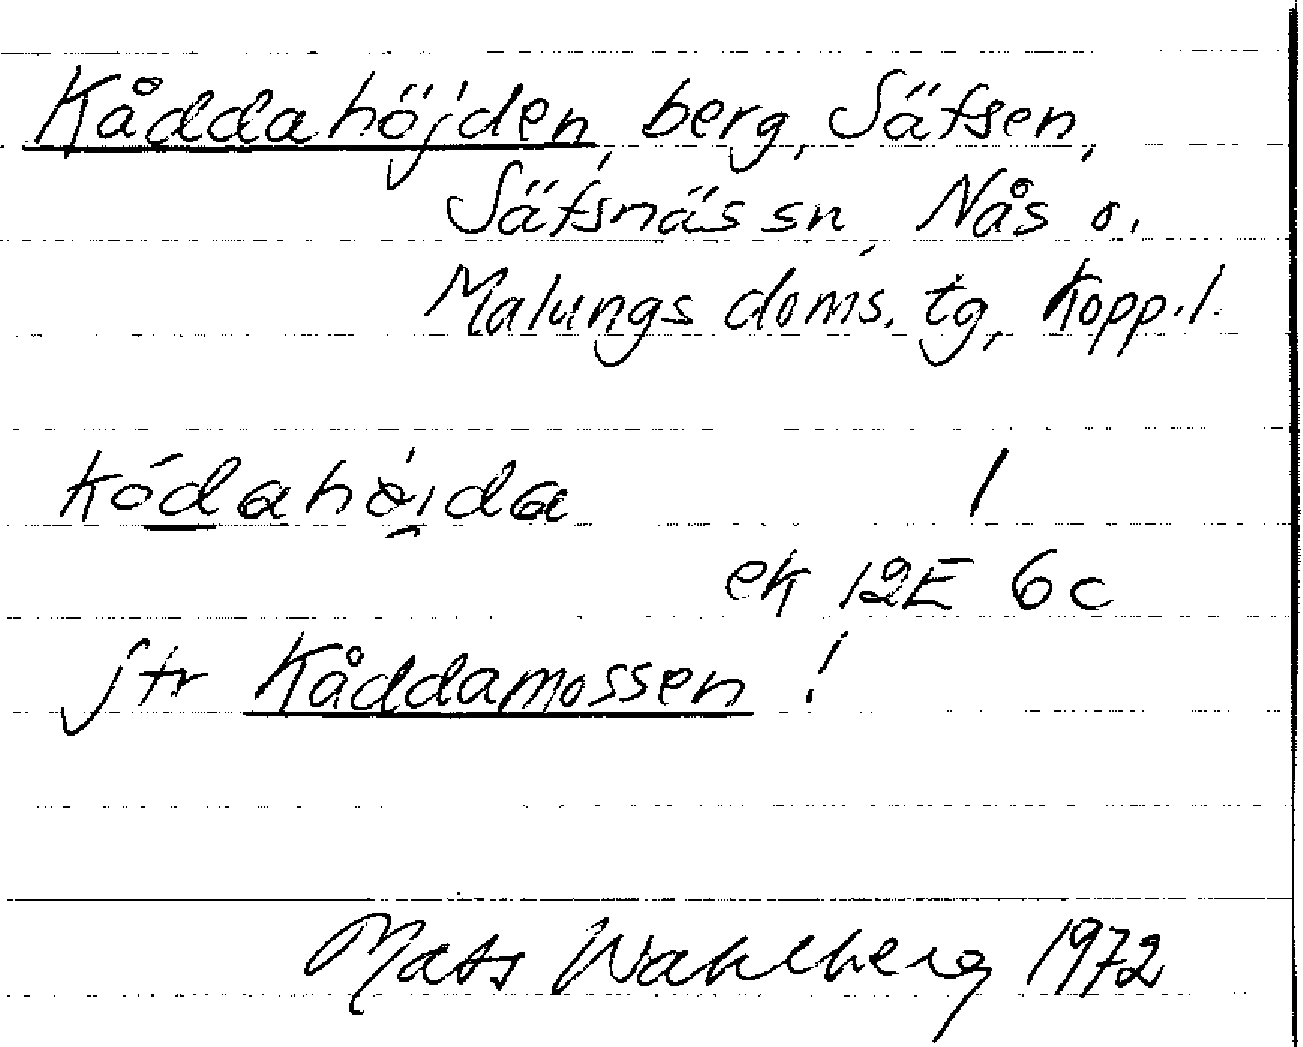 Kåddahöjden, berg, Sätsen,
Sätsnäs sn, Nås o.
Malungs doms. tg, Kopp. l.
kódahòida /
ek 12E 6c
jtr Kåddamossen !
Mats Wahlberg 1972